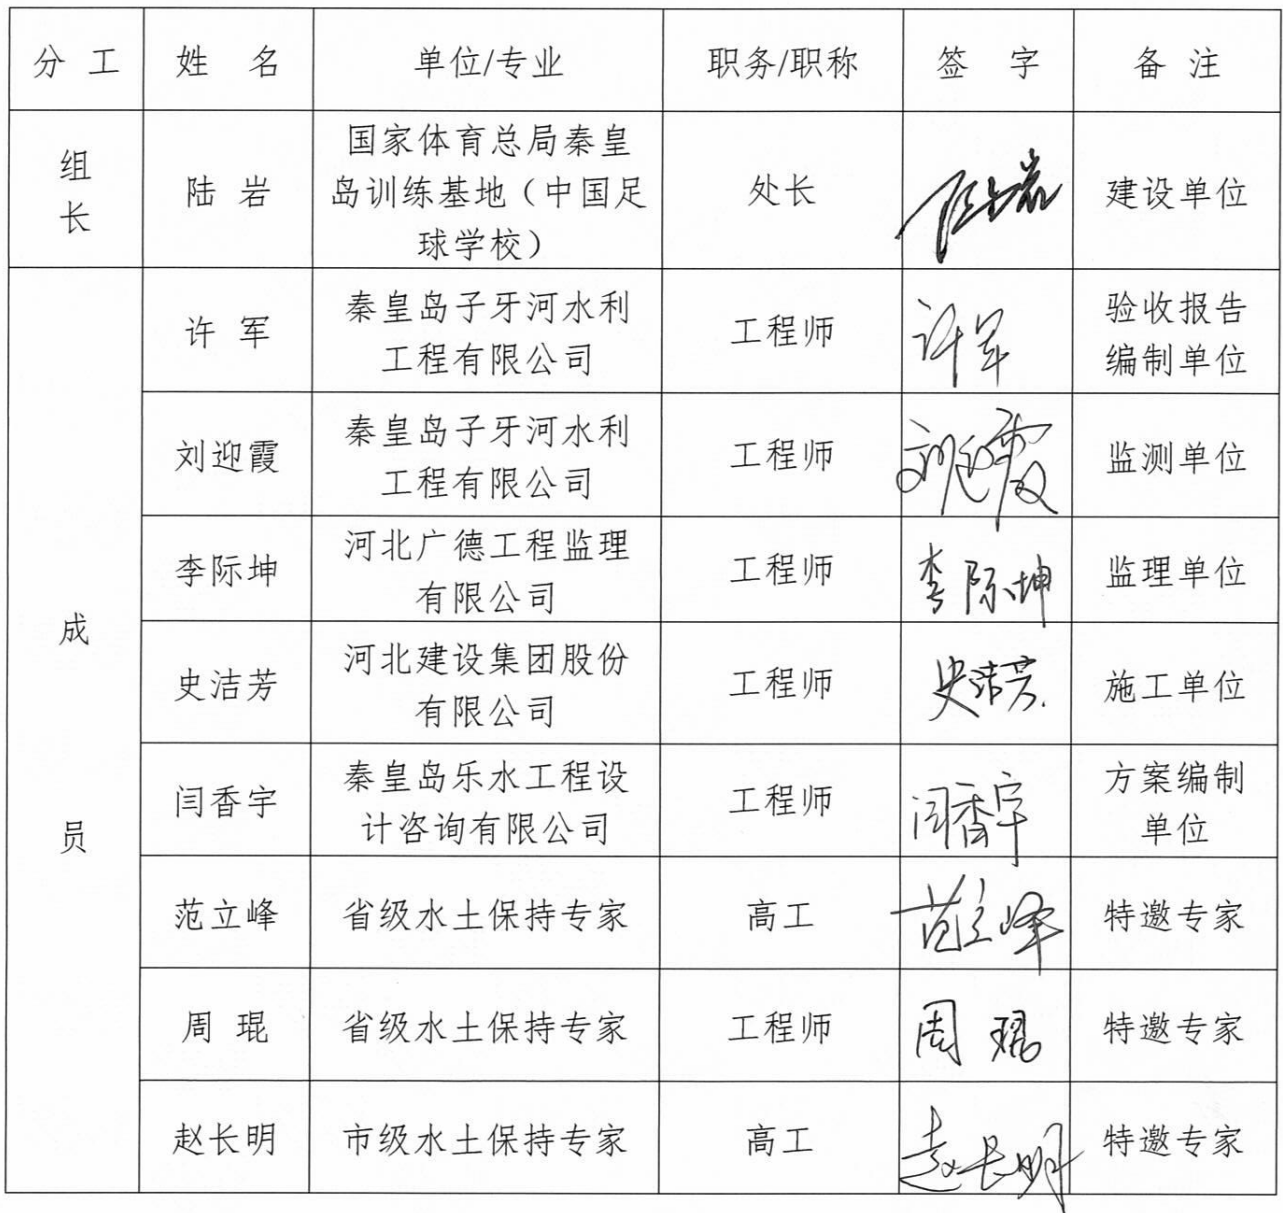 分 工 姓 名 单位/专业 职务/职称 签 字 备 注
组
长
陆 岩
国家体育总局秦皇
岛训练基地（中国足
球学校）
处长
陆岩
建设单位
成
员
许 军
秦皇岛子牙河水利
工程有限公司
工程师
许军
验收报告
编制单位
刘迎霞
秦皇岛子牙河水利
工程有限公司
工程师
刘迎霞
监测单位
李际坤
河北广德工程监理
有限公司
工程师
李际坤
监理单位
史洁芳
河北建设集团股份
有限公司
工程师
史洁芳
施工单位
闫香宇
秦皇岛乐水工程设
计咨询有限公司
工程师
闫香宇
方案编制
单位
范立峰
省级水土保持专家
高工
范立峰
特邀专家
周 琨
省级水土保持专家
工程师
周琨
特邀专家
赵长明
市级水土保持专家
高工
赵长明
特邀专家